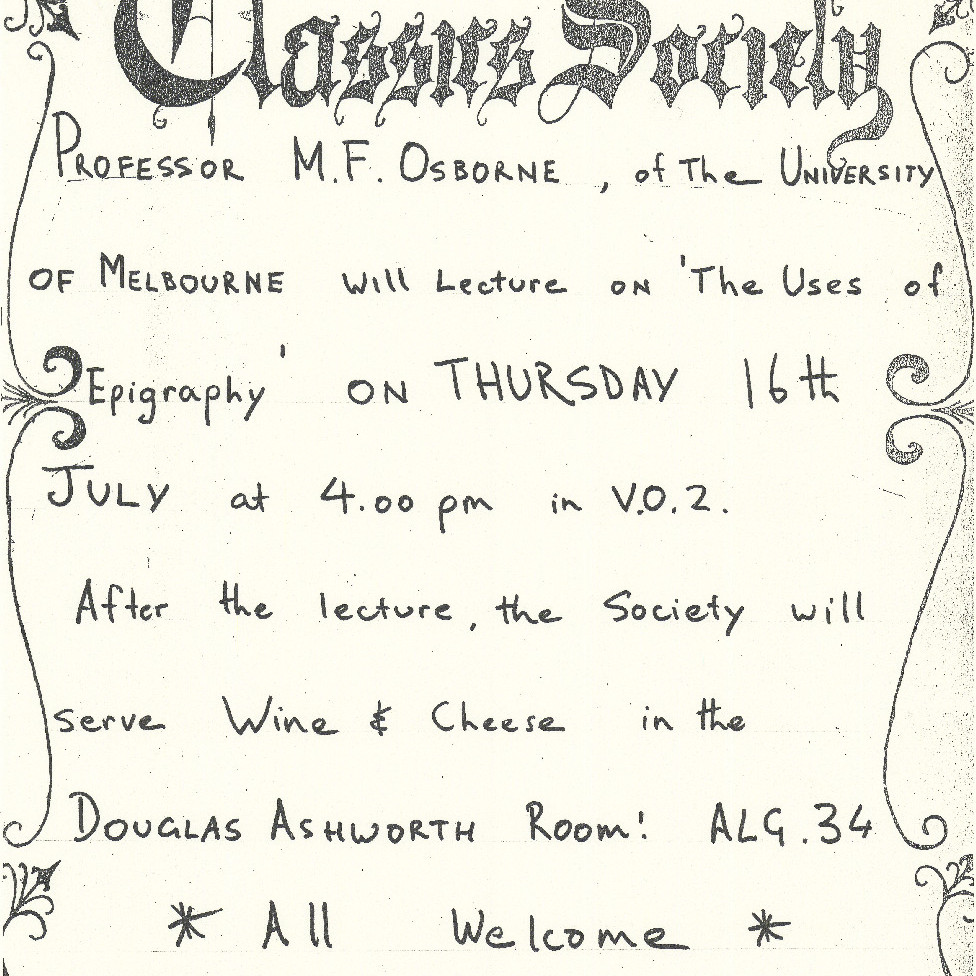 Classics Society
PROFESSOR M.F. OSBORNE, of The UNIVERSITY
OF MELBOURNE will Lecture on 'The Uses of
Epigraphy' ON THURSDAY 16th
JULY at 4.00 pm in V.O.2.
After the lecture, the Society will
serve Wine & Cheese in the
DOUGLAS ASHWORTH Room! ALG.34
* All Welcome *